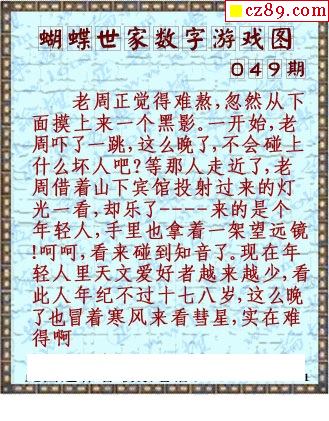 cz89.com
蝴蝶世家数字游戏图
049期
老周正觉得难熬,忽然从下
面摸上来一个黑影。一开始,老
周吓了一跳,这么晚了,不会碰上
什么坏人吧?等那人走近了,老
周借着山下宾馆投射过来的灯
光一看,却乐了----来的是个
年轻人,手里也拿着一架望远镜
!呵呵,看来碰到知音了。现在年
轻人里天文爱好者越来越少,看
此人年纪不过十七八岁,这么晚
了也冒着寒风来看彗星,实在难
得啊